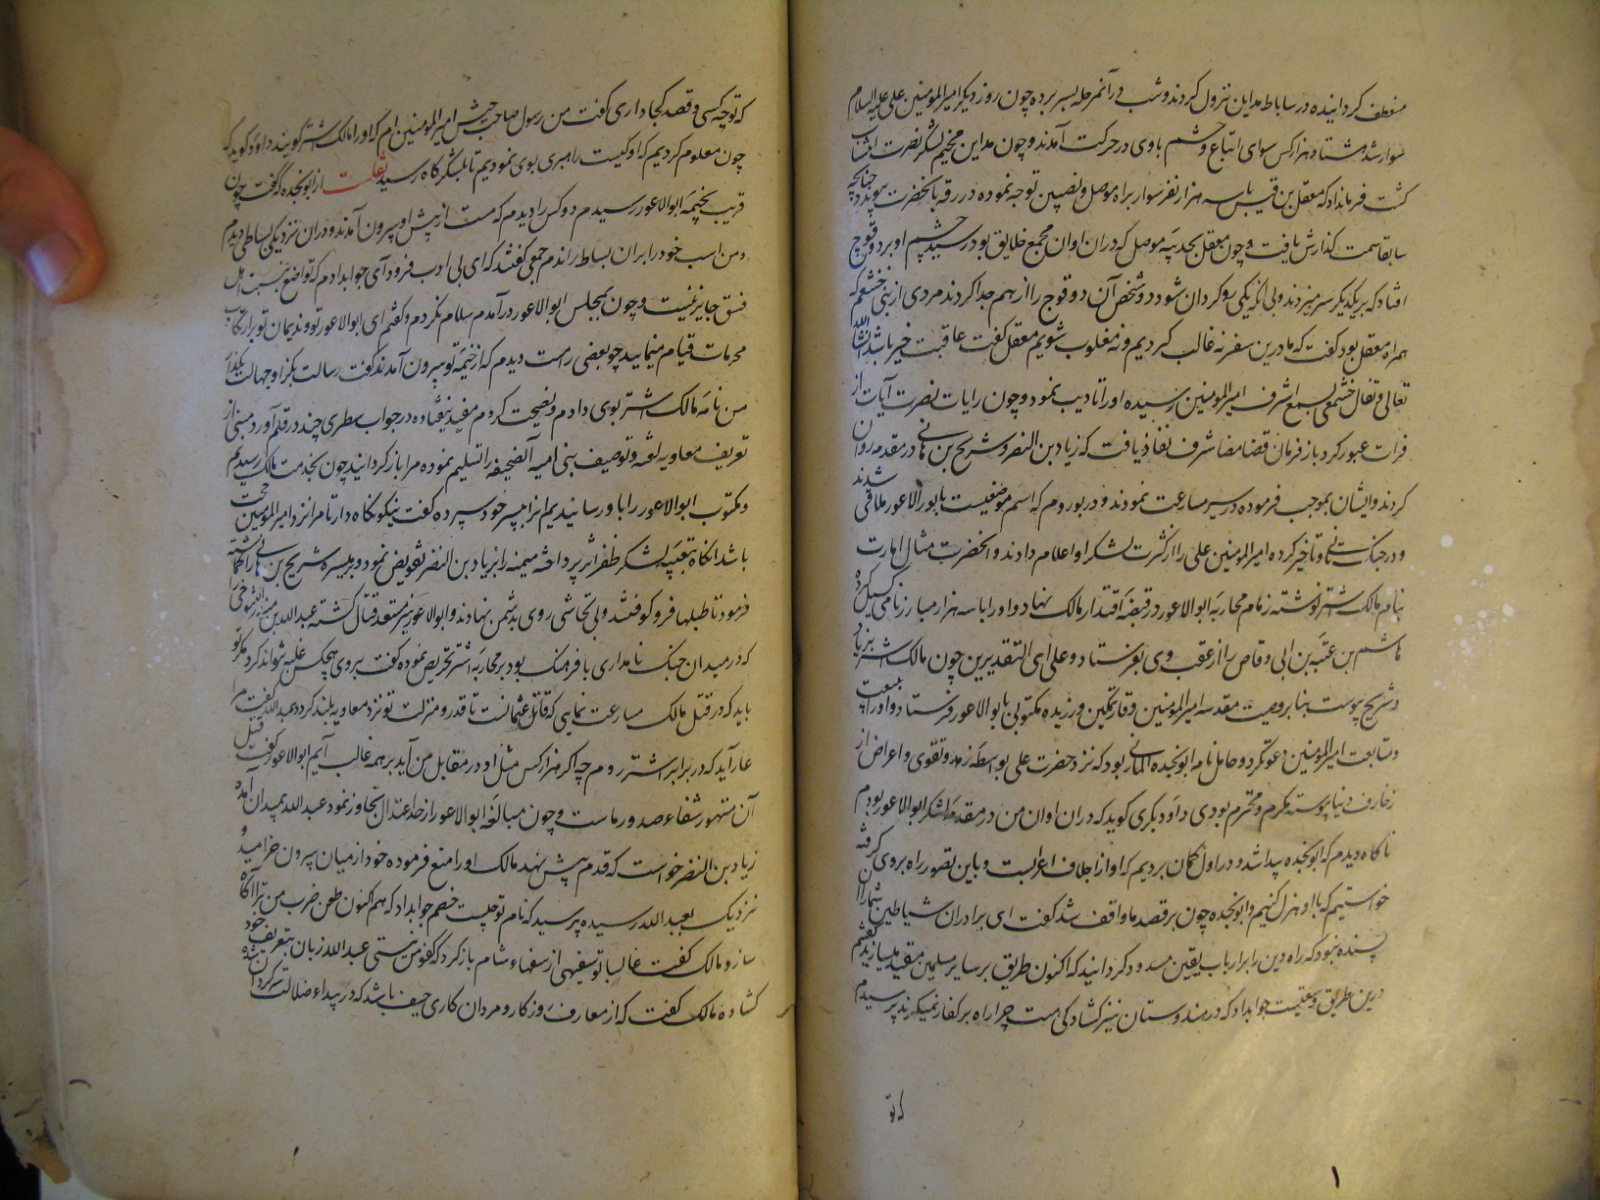 منعطف کردانیده در ساباط مداین نزول کردند و شب در آنمرحله بسر برده چون روز دیکر امیرالمومنین علی علیه السلام
سوار شد هشتاد هزار کس سوای اتباع و حشم با وی در حرکت آمدند و چون مداین مخیم لشکر نصرت انتساب
کشت فرمانداد که معقل بن قیس با سه هزار نفر سوار براه موصل و نصیبین توجه نموده در رقه بانحضرت پیوندد چنانچه
سابقا سمت کذارش یافت و چون معقل بحدیثه موصل که دران اوان مجمع خلایق بود رسید چشم او بر دو قوچ
افتاد که بر یکدیکر سر میزدند ولی انکه یکی رو کردان شود دو شخص آن دو قوچ را از هم جدا کردند مردی از بنی خشعم که
همراه معقل بود کفت که ما درین سفر نه غالب کردیم و نه مغلوب شویم معقل کفت عاقبت خیر باشد انشاالله
تعالی و تفال خشعمی بسمع اشرف امیرالمومنین رسیده او را تادیب نمود و چون رایات نصرت آیات از
فرات عبور کرد باز فرمان قضا مضا شرف نفاذ یافت که زیاد بن النصر و شریح بن هانی در مقدمه روان شدند
کردند و ایشان بموجب فرموده در سیر مسارعت نمودند و در بوروم که اسم موضعیست بابو الاعور ملاقی
و در جنک تانی و تاخیر کرده امیرالمومنین علی را از کثرت لشکر او اعلام دادند و انحضرت مثال امارت
بنام مالک اشتر نوشته زمام محاربه ابو الاعور در قبضه اقتدار مالک نهاد و او را با سه هزار مبارز نامی کسیل کرده
هاشم بن عتبه بن ابی وقاص را از عقب وی بفرستاد و علی ای التقدیرین چون مالک اشتر بزیاد
و شریح پیوست بنا بر وصیت مقدسه امیرالمومنین وقار و تمکین ورزیده مکتوبی بابو الاعور فرستاد و او را به بیعت
و متابعت امیرالمومنین دعوت کرد و حامل نامه ابو نجده بود که نزد حضرت علی بواسطه زهد و تقوی و اعراض از
زخارف دنیا پیوسته مکرم و محترم بودی داود بکری کوید که دران اوان من در مقدمه لشکر ابو الاعور بودم
ناکاه دیدم که ابو نجده پیدا شد و در اول کمان بردیم که او از اجلاف اعرابست و باین تصور راه بر وی کرفته
خواستیم که با او هزل کنیم و ابو نجده چون بر قصد ما واقف شد کفت ای برادران شیاطین شما را این
پسنده نبود که راه دین را بر ارباب یقین مسدود کردانید که اکنون طریق بر سایر مسلمین مقید میسازید کفتیم
درین طریق وسعتیست جوابداد که در هندوستان نیز کشادکی هست چرا راه بر کفار نمیکیرند پرسیدم
که تو
که تو چه کسی و قصد کجا داری کفت من رسول صاحب جیش امیرالمومنین ام که او را مالک اشتر کویند داود کوید که
چون معلوم کردیم که او کیست راهبری بوی نمودیم تا بلشکرکاه رسید نقلست از ابو نجده که کفت چون
قریب بخیمه ابو الاعور رسیدم دو کس را دیدم که مست از پیش او بیرون آمدند و دران نزدیکی بساطی دیدم
و من اسب خود را بران بساط راندم جمعی کفتند که ای بی ادب فرود آی جوابدادم که تواضع نسبت باهل
فسق جایز نیست و چون بمجلس ابو الاعور درآمدم سلام نکردم و کفتم ای ابو الاعور تو و ندیمان تو بارتکاب
محرمات قیام مینمایید چو بعضی را مست دیدم که از خیمه تو بیرون آمدند کفت رسالت بکزار و جهالت بکذار
من نامه مالک اشتر بوی دادم و نصیحت کردم مفید نیفتاده در جواب سطری چند در قلم آورد مبنی از
تعریف معاویه لعنه و توصیف بنی امیه آنصحیفه را تسلیم نموده مرا باز کردانید چون بخدمت مالک رسیدم
و مکتوب ابو الاعور را باو رسانیدیم انرا بپسر خود سپرده کفت نیکو نکاه دار تا مرا نزد امیرالمومنین حجت
باشد انکاه بتعبیه لشکر ظفر اثر پرداخته میمنه را بزیاد بن النصر تفویض نمود و بر میسره شریح بن هانی را کماشته
فرمود تا طبلها فرو کوفتند ولی تحاشی روی بدشمن نهادند و ابو الاعور نیز مستعد قتال کشته عبدالله بن منذر التنوخی را
که در میدان جنک نامداری با فرهنک بود بر محاربه اشتر تحریص نموده کفت بروی هیچکس غلبه نتواند کرد مکر تو
باید که در قتل مالک مسارعت نمایی که قاتل عثمانست تا قدر و منزلت تو نزد معاویه بلند کردد عبدالله کفت مرا
عار آید که در برابر اشتر روم چه اکر هزار کس مثل او در مقابل من آید بر همه غالب آیم ابو الاعور کفت قتل
آن متهور شفاء صدور ماست و چون مبالغه ابو الاعور از حد اعتدال تجاوز نمود عبدالله بمیدان آمده
زیاد بن النضر خواست که قدم پیش نهد مالک او را منع فرموده خود از میان بیرون خرامید و
نزدیک بعبدالله رسیده پرسید که نام تو چیست خصم جوابداد که هم اکنون طعن و ضرب من ترا آکاه
سازد مالک کفت غالبا تو سفیهی از سفهاء شام باز کرد که کفو من نیستی عبدالله زبان بتعریف خود
کشاده مالک کفت که از معارف روزکار و مردان کاری حیف باشد که در بیداء ضلالت سرکردان